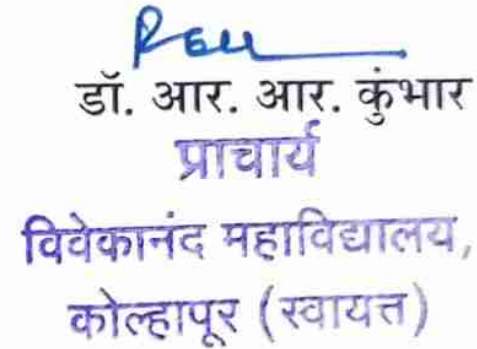 डॉ. आर. आर. कुंभार
प्राचार्य
विवेकानंद महाविद्यालय,
कोल्हापूर (स्वायत्त)